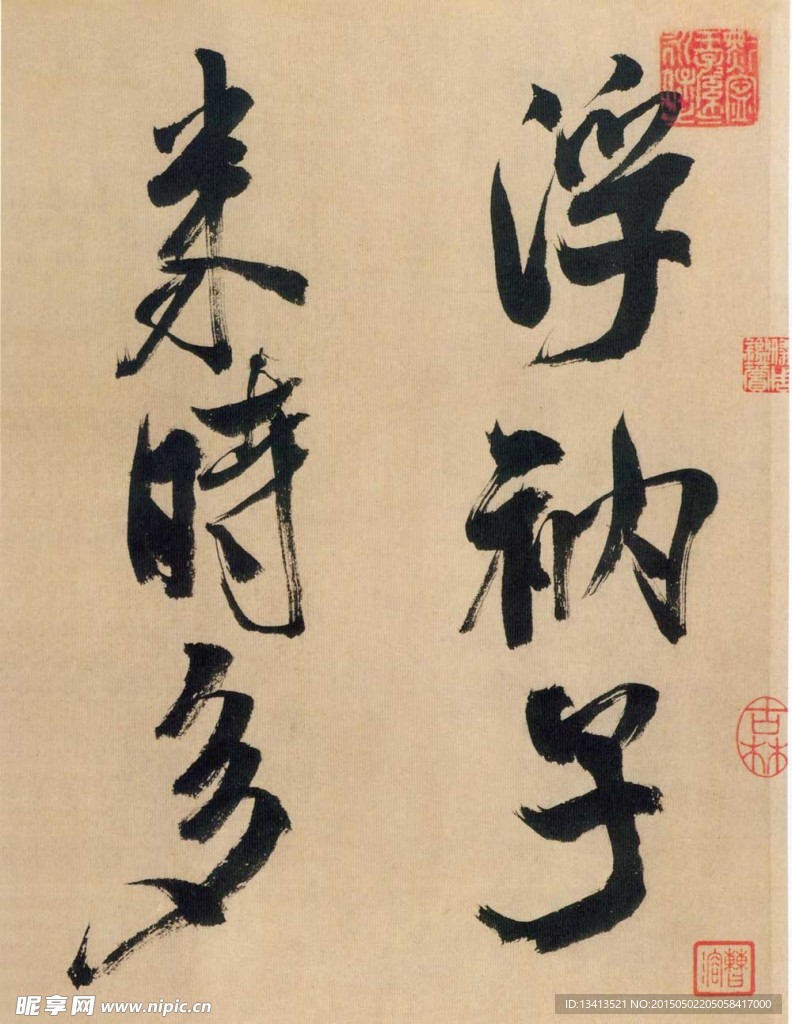 浮衲子
来時多
古林
曹溶
昵享网 www.nipic.cn
ID:13413521 NO:20150502205058417000